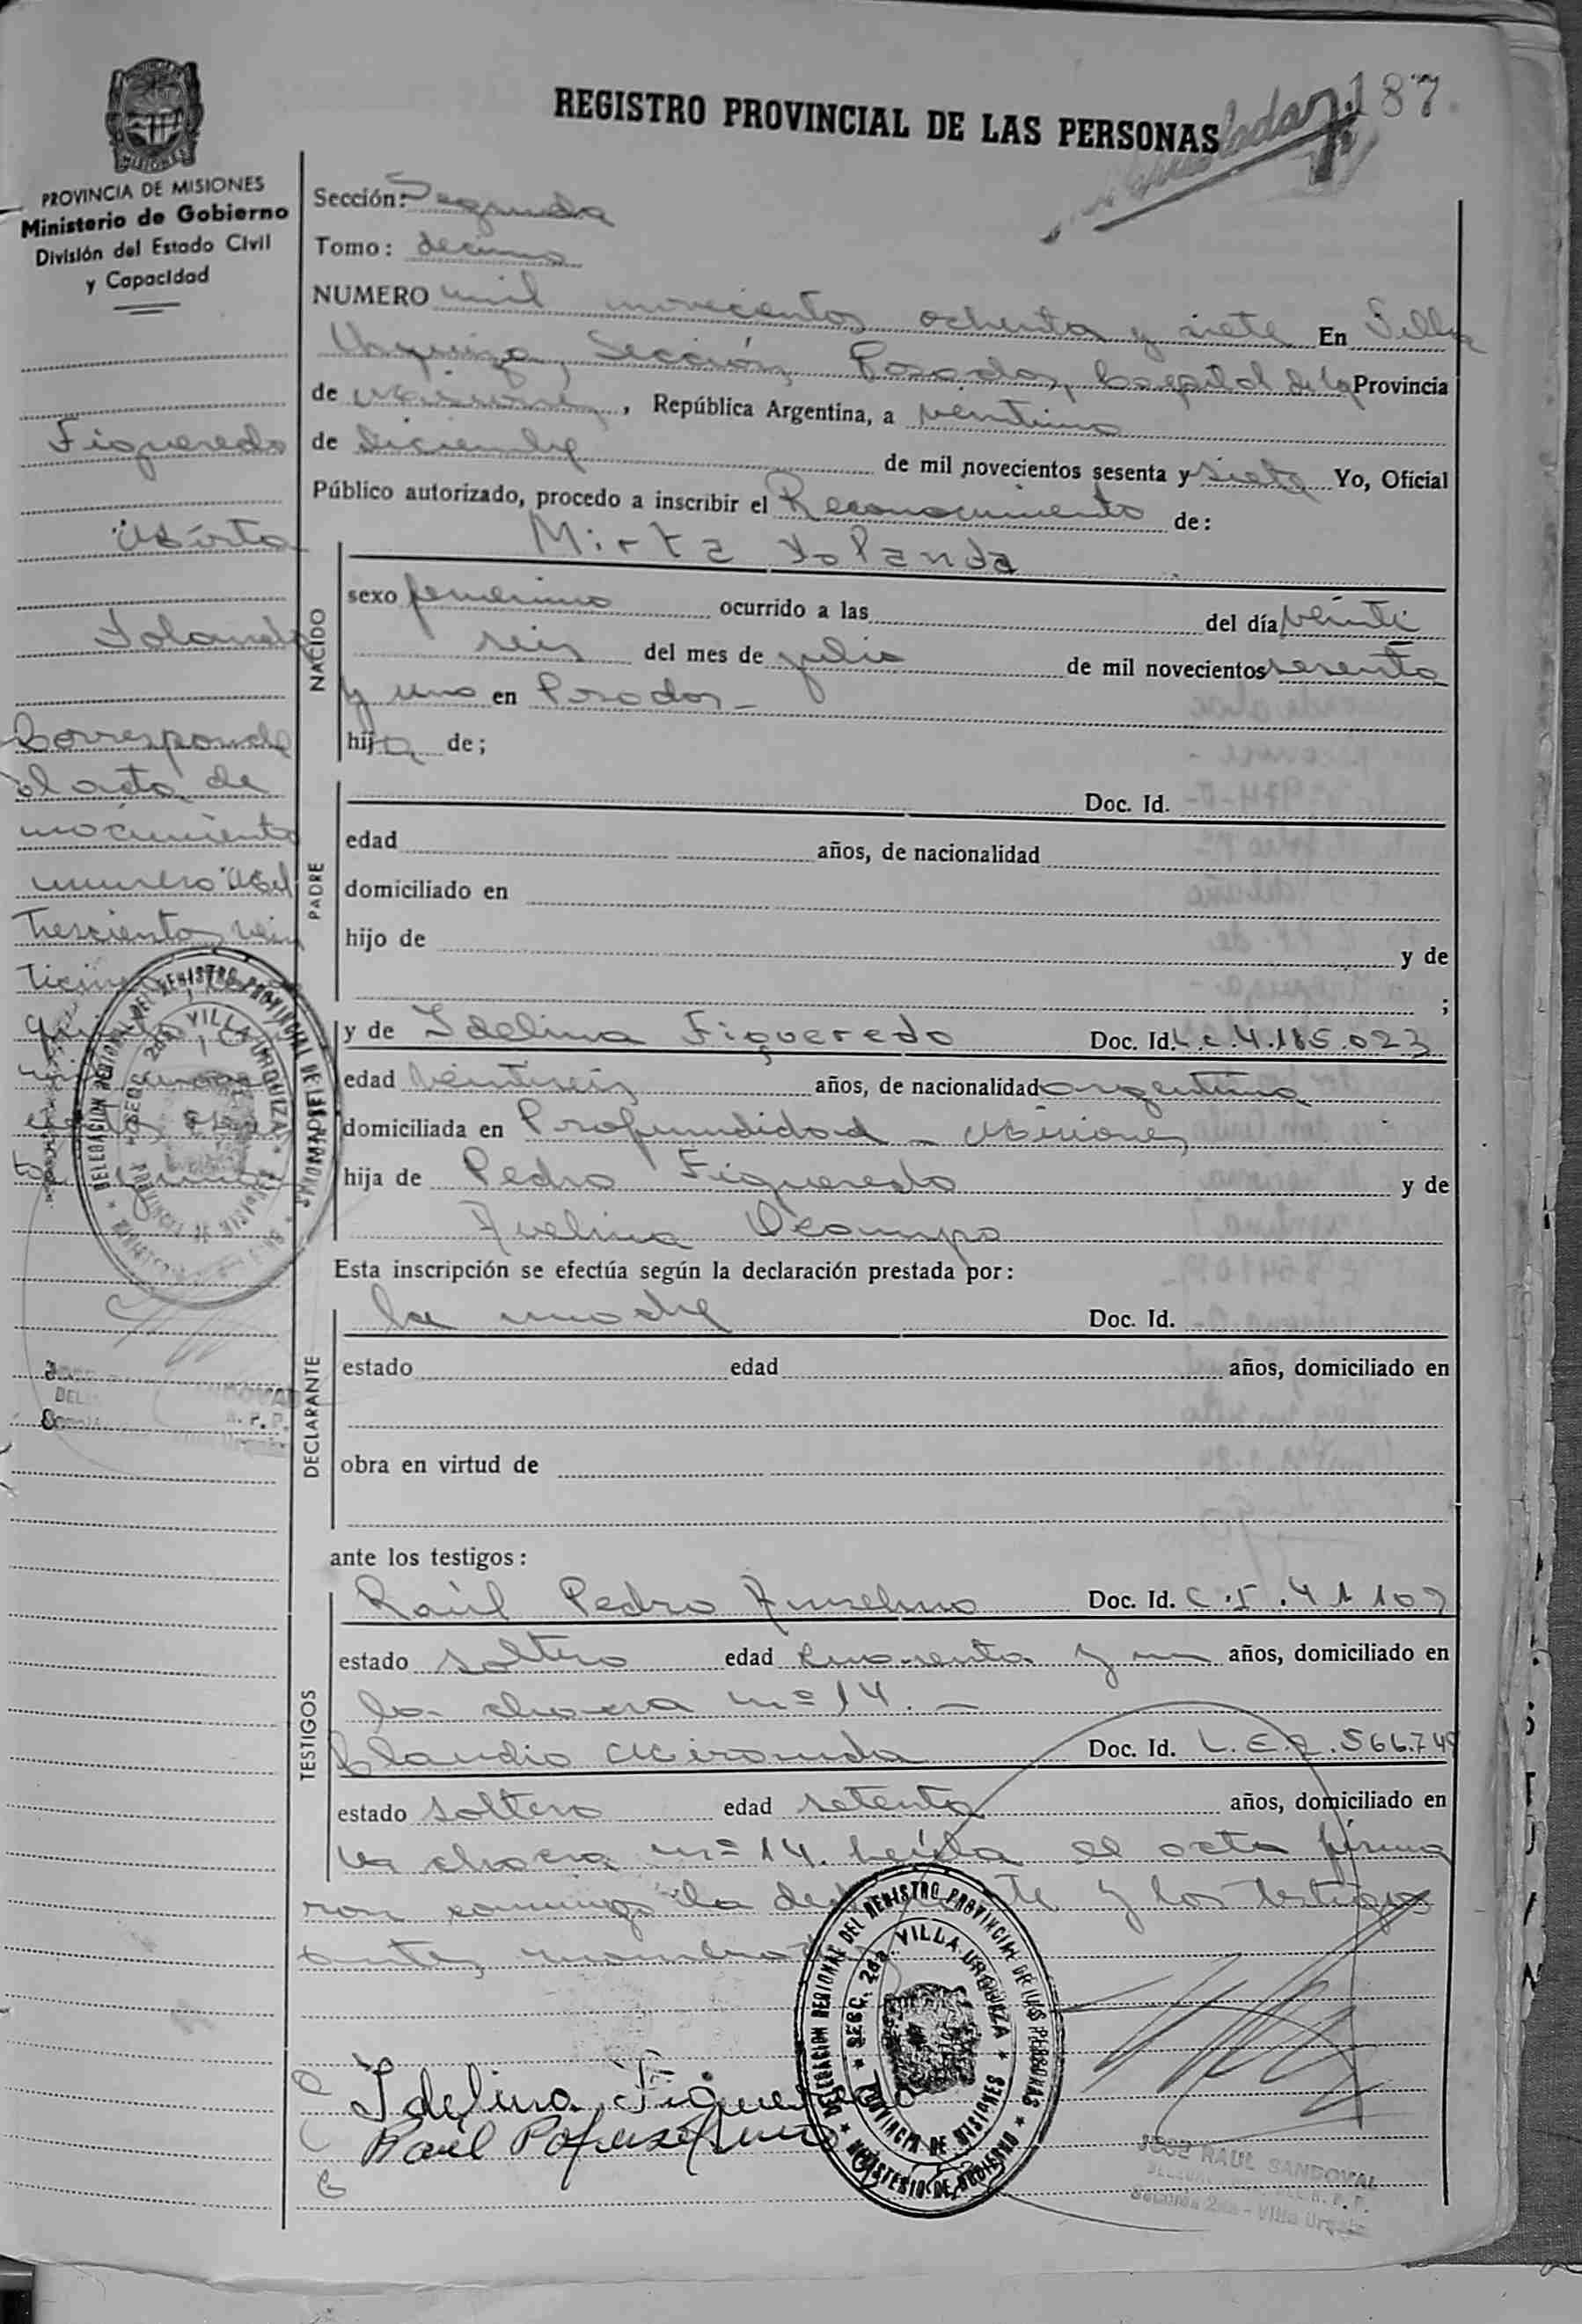 187
REGISTRO PROVINCIAL DE LAS PERSONAS
PROVINCIA DE MISIONES
Ministerio de Gobierno
División del Estado Civil
y Capacidad
Figueredo
Mirta
Yolanda
Corresponde
al acta de
nacimiento
numero Mil
Trescientos vein
Sección: Segunda
Tomo: decimo
NUMERO mil novecientos ochenta y siete En Villa
Urquiza, Sección, Posadas, Capital de la Provincia
de Misiones, República Argentina, a veintiuno
de Diciembre de mil novecientos sesenta y siete Yo, Oficial
Público autorizado, procedo a inscribir el Reconocimiento de:
Mirta Yolanda
NACIDO
sexo femenino ocurrido a las del día veinti
seis del mes de julio de mil novecientos sesenta
y uno en Posadas -
hija de;
PADRE
Doc. Id.
edad años, de nacionalidad
domiciliado en
hijo de y de
;
y de Idelina Figueredo Doc. Id. L.C. 4.185.023
edad veintiseis años, de nacionalidad argentina
domiciliada en Profundidad - Misiones
hija de Pedro Figueredo y de
Avelina Ocampo
Esta inscripción se efectúa según la declaración prestada por:
DECLARANTE
la madre Doc. Id.
estado edad años, domiciliado en
obra en virtud de
ante los testigos:
TESTIGOS
Raúl Pedro Anselmo Doc. Id. C.I. 41109
estado soltero edad cuarenta y un años, domiciliado en
la chacra nº 14. -
Claudio Miranda Doc. Id. L.E. 2.566.749
estado soltero edad setenta años, domiciliado en
la chacra nº 14. Leída el acta firma
ron conmigo la y los testigos
antes
Idelina Figueredo
Raúl
DELEGACION REGIONAL DEL REGISTRO PROVINCIAL DE LAS PERSONAS
SECC. 2da. VILLA URQUIZA
PROVINCIA DE MISIONES
MINISTERIO DE GOBIERNO
JOSE RAUL SANDOVAL
Sección 2da - Villa Urquiza